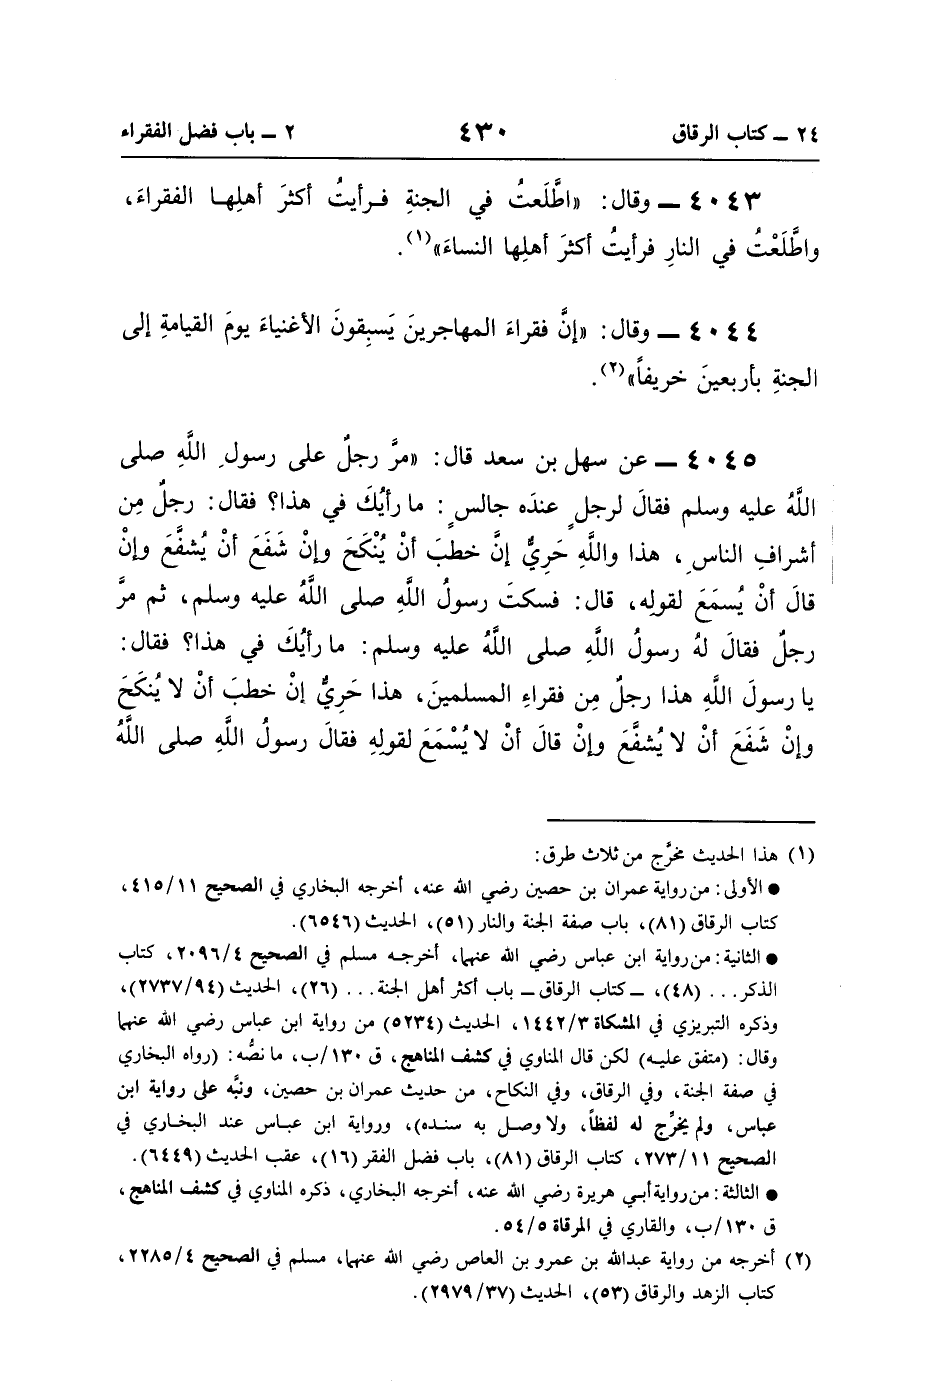 ٢٤ ــ كتاب الرقاق ٤٣٠ ٢ ــ باب فضل الفقراء
٤٠٤٣ ــ وقال: «اطَّلَعتُ في الجنةِ فرأيتُ أكثرَ أهلِها الفقراءَ،
واطَّلَعْتُ في النارِ فرأيتُ أكثرَ أهلِها النساءَ»(١).
٤٠٤٤ ــ وقال: «إنَّ فقراءَ المهاجرينَ يَسبِقونَ الأغنياءَ يومَ القيامةِ إلى
الجنةِ بأربعينَ خريفاً»(٢).
٤٠٤٥ ــ عن سهل بن سعد قال: «مرَّ رجلٌ على رسولِ اللَّهِ صلى
اللَّهُ عليه وسلم فقالَ لرجلٍ عندَه جالسٍ: ما رأيُكَ في هذا؟ فقال: رجلٌ مِن
أشرافِ الناسِ، هذا واللَّهِ حَرِيٌّ إنَّ خطبَ أنْ يُنْكَحَ وإنْ شَفَعَ أنْ يُشفَّعَ وإنْ
قالَ أنْ يُسمَعَ لقولِه، قال: فسكتَ رسولُ اللَّهِ صلى اللَّهُ عليه وسلم، ثم مرَّ
رجلٌ فقالَ لهُ رسولُ اللَّهِ صلى اللَّهُ عليه وسلم: ما رأيُكَ في هذا؟ فقال:
يا رسولَ اللَّهِ هذا رجلٌ مِن فقراءِ المسلمينَ، هذا حَرِيٌّ إنْ خطبَ أنْ لا يُنكَحَ
وإنْ شَفَعَ أنْ لا يُشفَّعَ وإنْ قالَ أنْ لا يُسْمَعَ لقولِهِ فقالَ رسولُ اللَّهِ صلى اللَّهُ
(١) هذا الحديث مخرَّج من ثلاث طرق:
● الأولى: من رواية عمران بن حصين رضي الله عنه، أخرجه البخاري في الصحيح ٤١٥/١١،
كتاب الرقاق (٨١)، باب صفة الجنة والنار (٥١)، الحديث (٦٥٤٦).
● الثانية: من رواية ابن عباس رضي الله عنهما، أخرجه مسلم في الصحيح ٢٠٩٦/٤، كتاب
الذكر... (٤٨)، ــ كتاب الرقاق ــ باب أكثر أهل الجنة... (٢٦)، الحديث (٢٧٣٧/٩٤)،
وذكره التبريزي في المشكاة ١٤٤٢/٣، الحديث (٥٢٣٤) من رواية ابن عباس رضي الله عنهما
وقال: (متفق عليه) لكن قال المناوي في كشف المناهج، ق ١٣٠/ب، ما نصُّه: (رواه البخاري
في صفة الجنة، وفي الرقاق، وفي النكاح، من حديث عمران بن حصين، ونبَّه على رواية ابن
عباس، ولم يخرِّج له لفظاً، ولا وصل به سنده)، ورواية ابن عباس عند البخاري في
الصحيح ٢٧٣/١١، كتاب الرقاق (٨١)، باب فضل الفقر (١٦)، عقب الحديث (٦٤٤٩).
● الثالثة: من رواية أبي هريرة رضي الله عنه، أخرجه البخاري، ذكره المناوي في كشف المناهج،
ق ١٣٠/ب، والقاري في المرقاة ٥٤/٥.
(٢) أخرجه من رواية عبدالله بن عمرو بن العاص رضي الله عنهما، مسلم في الصحيح ٢٢٨٥/٤،
كتاب الزهد والرقاق (٥٣)، الحديث (٢٩٧٩/٣٧).